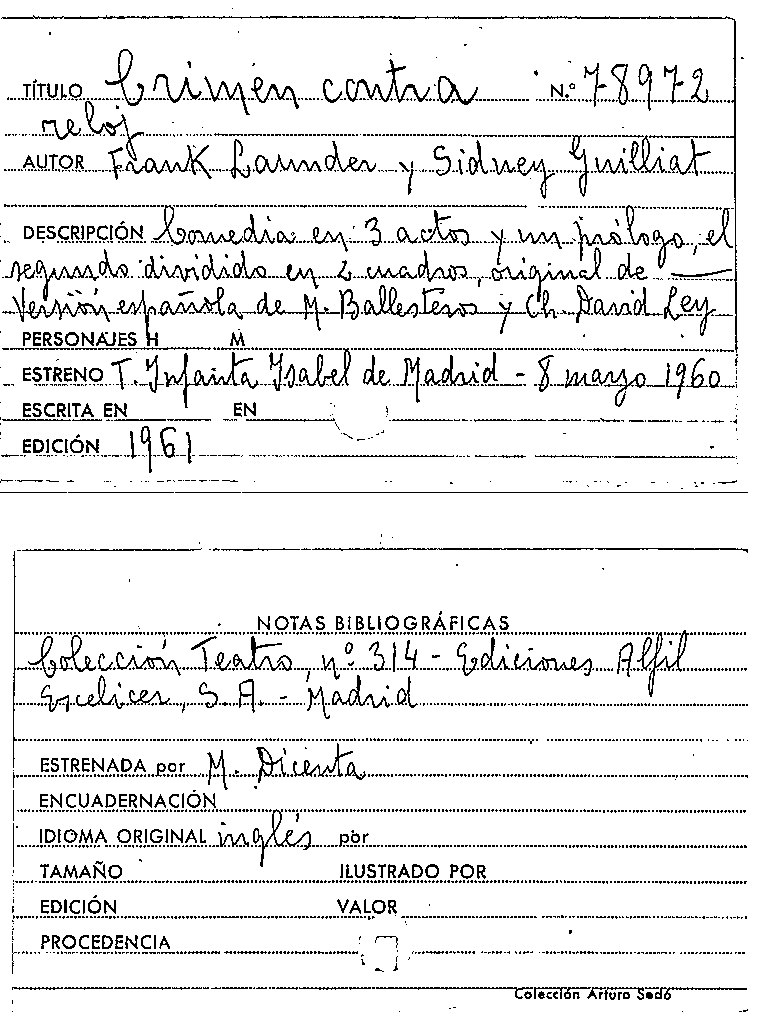 TÍTULO Crimen contra N.º 78972
reloj
AUTOR Frank Launder y Sidney Guilliat
DESCRIPCIÓN Comedia en 3 actos y un prólogo, el
segundo dividido en 2 cuadros, original de —
Versión española de M. Ballesteros y Ch. David Ley
PERSONAJES H M
ESTRENO T. Infanta Isabel de Madrid - 8 marzo 1960
ESCRITA EN EN
EDICIÓN 1961
NOTAS BIBLIOGRÁFICAS
Colección Teatro, nº 314 - Ediciones Alfil
Escelicer, S. A. - Madrid
ESTRENADA por M. Dicenta
ENCUADERNACIÓN
IDIOMA ORIGINAL inglés por
TAMAÑO ILUSTRADO POR
EDICIÓN VALOR
PROCEDENCIA
Colección Arturo Sedó